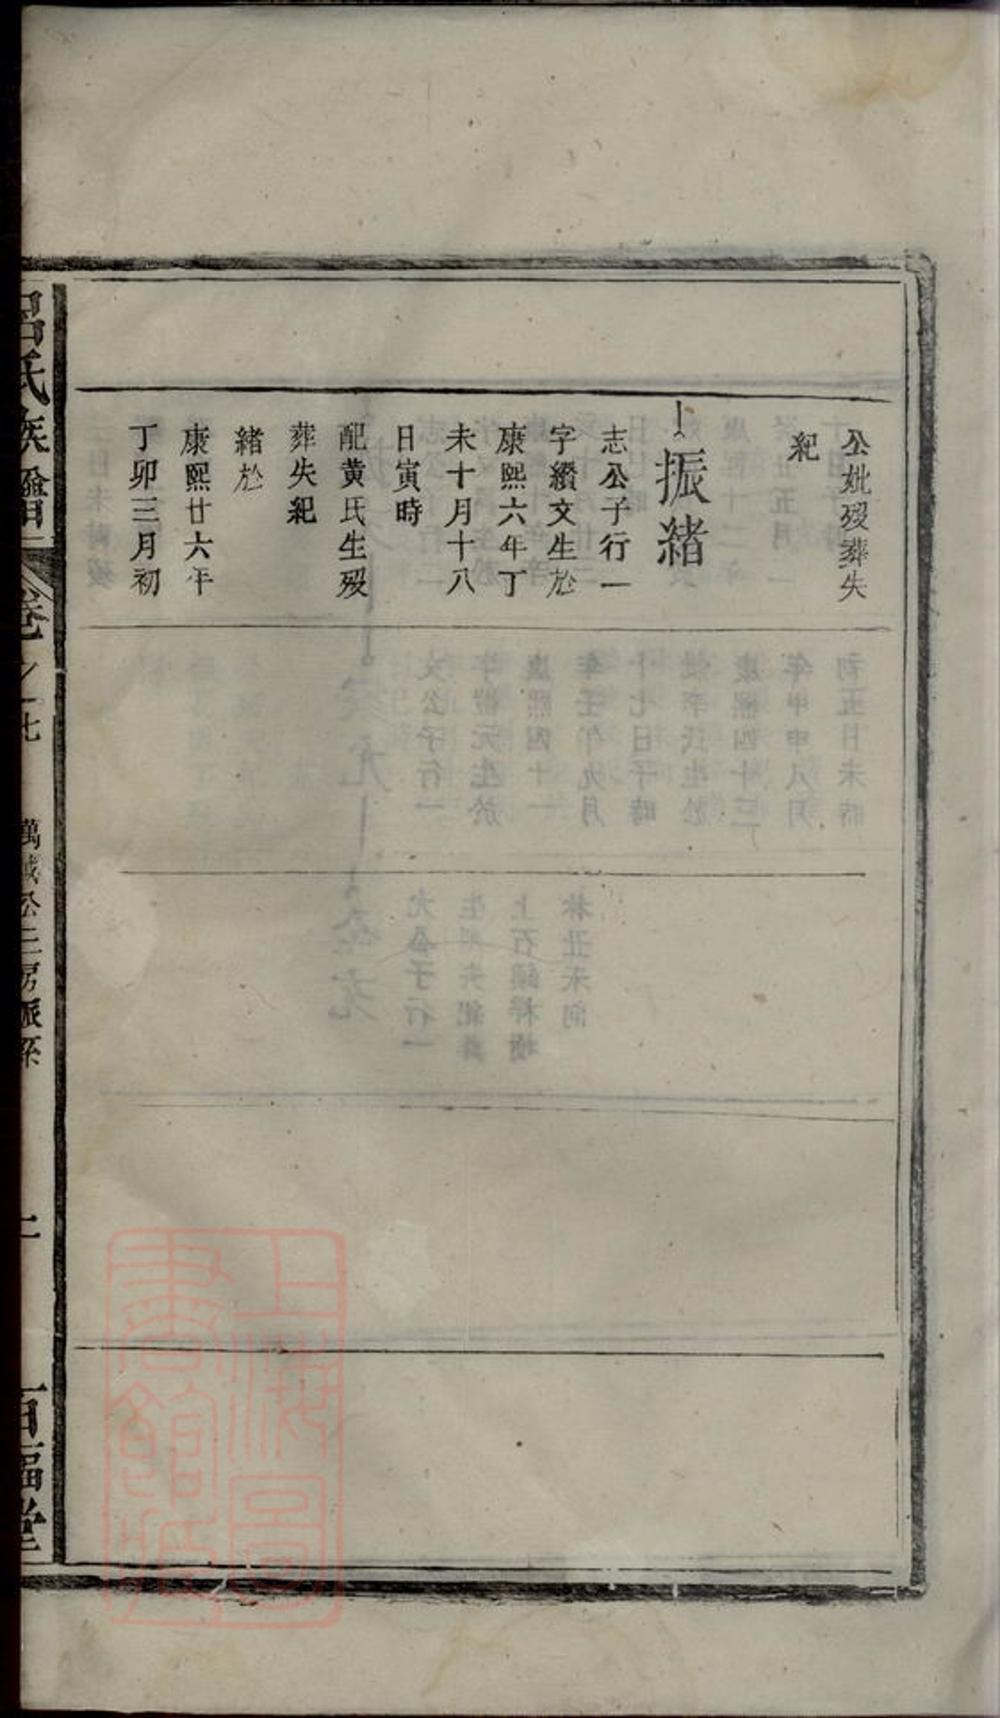 公妣歿葬失
紀
振緒
志公子行一
字纘文生於
康熙六年丁
未十月十八
日寅時
配黄氏生歿
葬失紀
緒於
康熙廿六年
丁卯三月初
呂氏族譜
卷之七
公三房派系
百福堂
上海圖書館藏